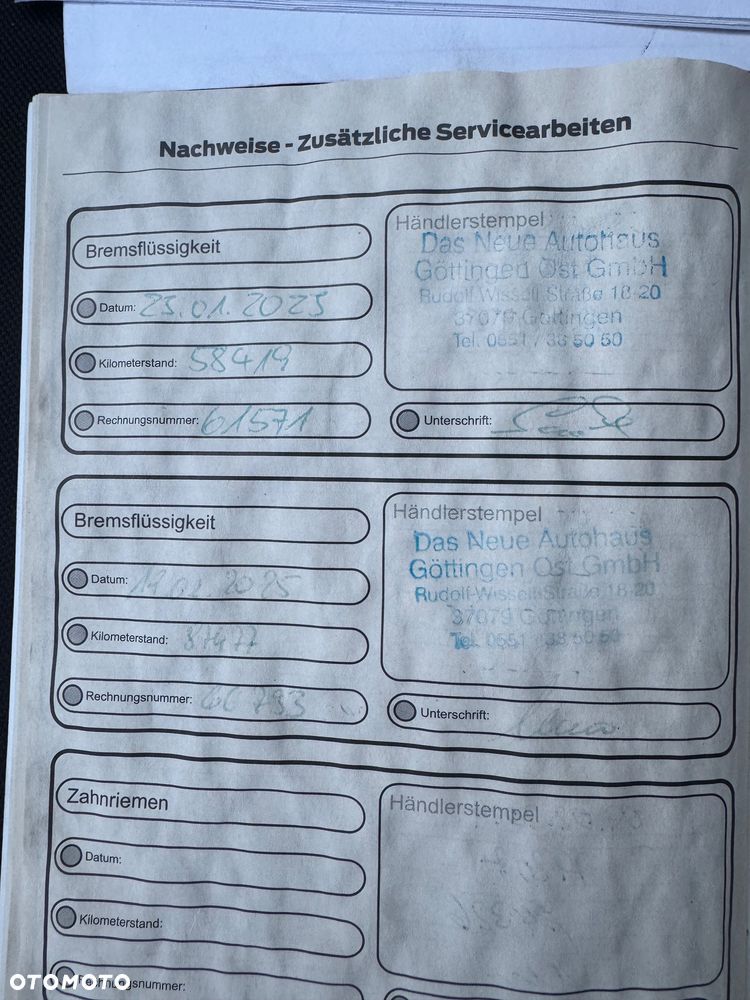 Nachweise - Zusätzliche Servicearbeiten
Bremsflüssigkeit
Händlerstempel
Das Neue Autohaus
Göttingen Ost GmbH
Rudolf-Wissell-Straße 18-20
37079 Göttingen
Tel. 0551 / 38 50 50
Datum: 23.01.2023
Kilometerstand: 58419
Rechnungsnummer: 61571
Unterschrift:
Bremsflüssigkeit
Händlerstempel
Das Neue Autohaus
Göttingen Ost GmbH
Rudolf-Wissell-Straße 18-20
37079 Göttingen
Tel. 0551 / 38 50 50
Datum: 2025
Kilometerstand:
Rechnungsnummer:
Unterschrift:
Zahnriemen
Händlerstempel
Datum:
Kilometerstand:
Rechnungsnummer:
OTOMOTO